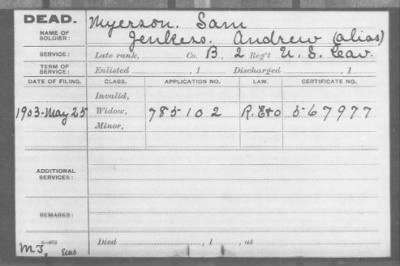 DEAD.
NAME OF SOLDIER: Myerson. Sam
Jenkers. Andrew (alias)
SERVICE: Late rank, Co. B, 2 Reg't U.S. Cav.
TERM OF SERVICE: Enlisted , 1 Discharged , 1
DATE OF FILING. CLASS. APPLICATION NO. LAW. CERTIFICATE NO.
Invalid,
1903-May 25 Widow, 785102 567977
Minor,
ADDITIONAL SERVICES:
REMARKS:
Died , 1 , at